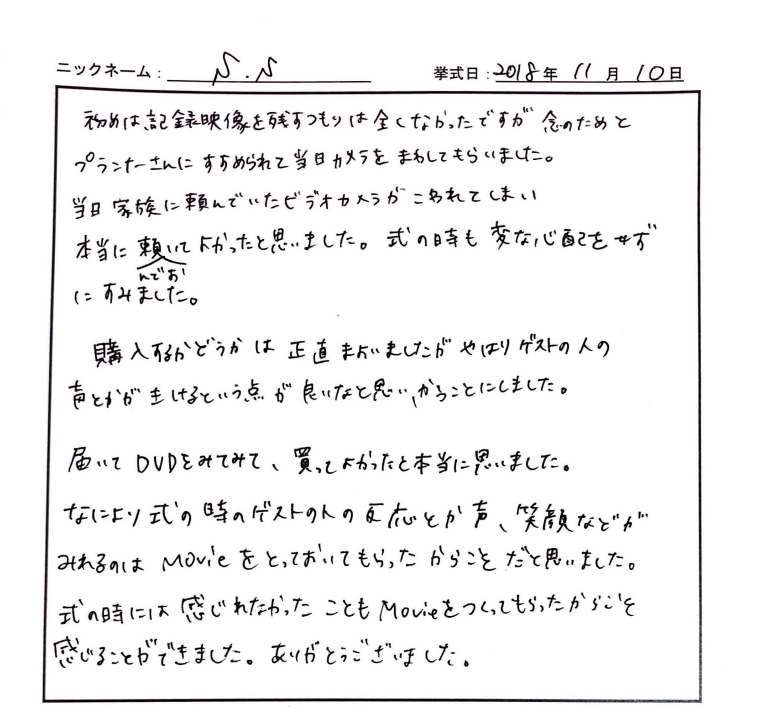 ニックネーム: N.N 挙式日:2018年 11月 10日
初めは、記録映像を残すつもりは全くなかったですが 念のためと
プランナーさんに すすめられて当日カメラを まわしてもらいました。
当日 家族に頼んでいたビデオカメラが こわれてしまい
本当に 頼いて よかったと思いました。 式の時も 変な心配をせず
んでお
に すみました。
購入するかどうか は 正直 まよいましたが やはり ゲストの人の
声とかが きけるという点が 良いなと思い、かうことにしました。
届いて DVDをみてみて、買ってよかったと本当に思いました。
なにより式の時のゲストの人の反応とか声、笑顔などが
みれるのは Movieをとっておいてもらった からこそ だと思いました。
式の時には 感じれなかった ことも Movieをつくってもらったからこそ
感じることができました。ありがとうございました。